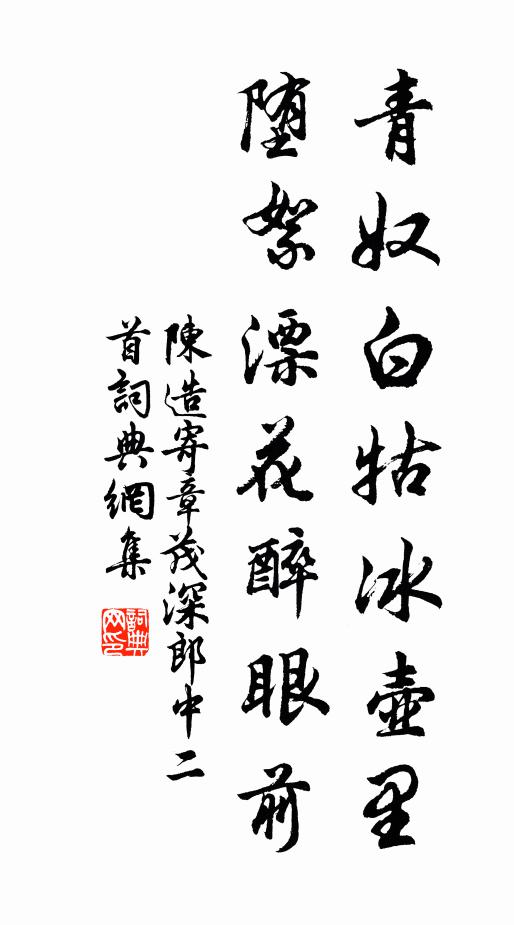 青奴白牯冰壺里
堕絮漂花醉眼前
陳造寄章茂深郎中二
首詞典網集
詞典網印